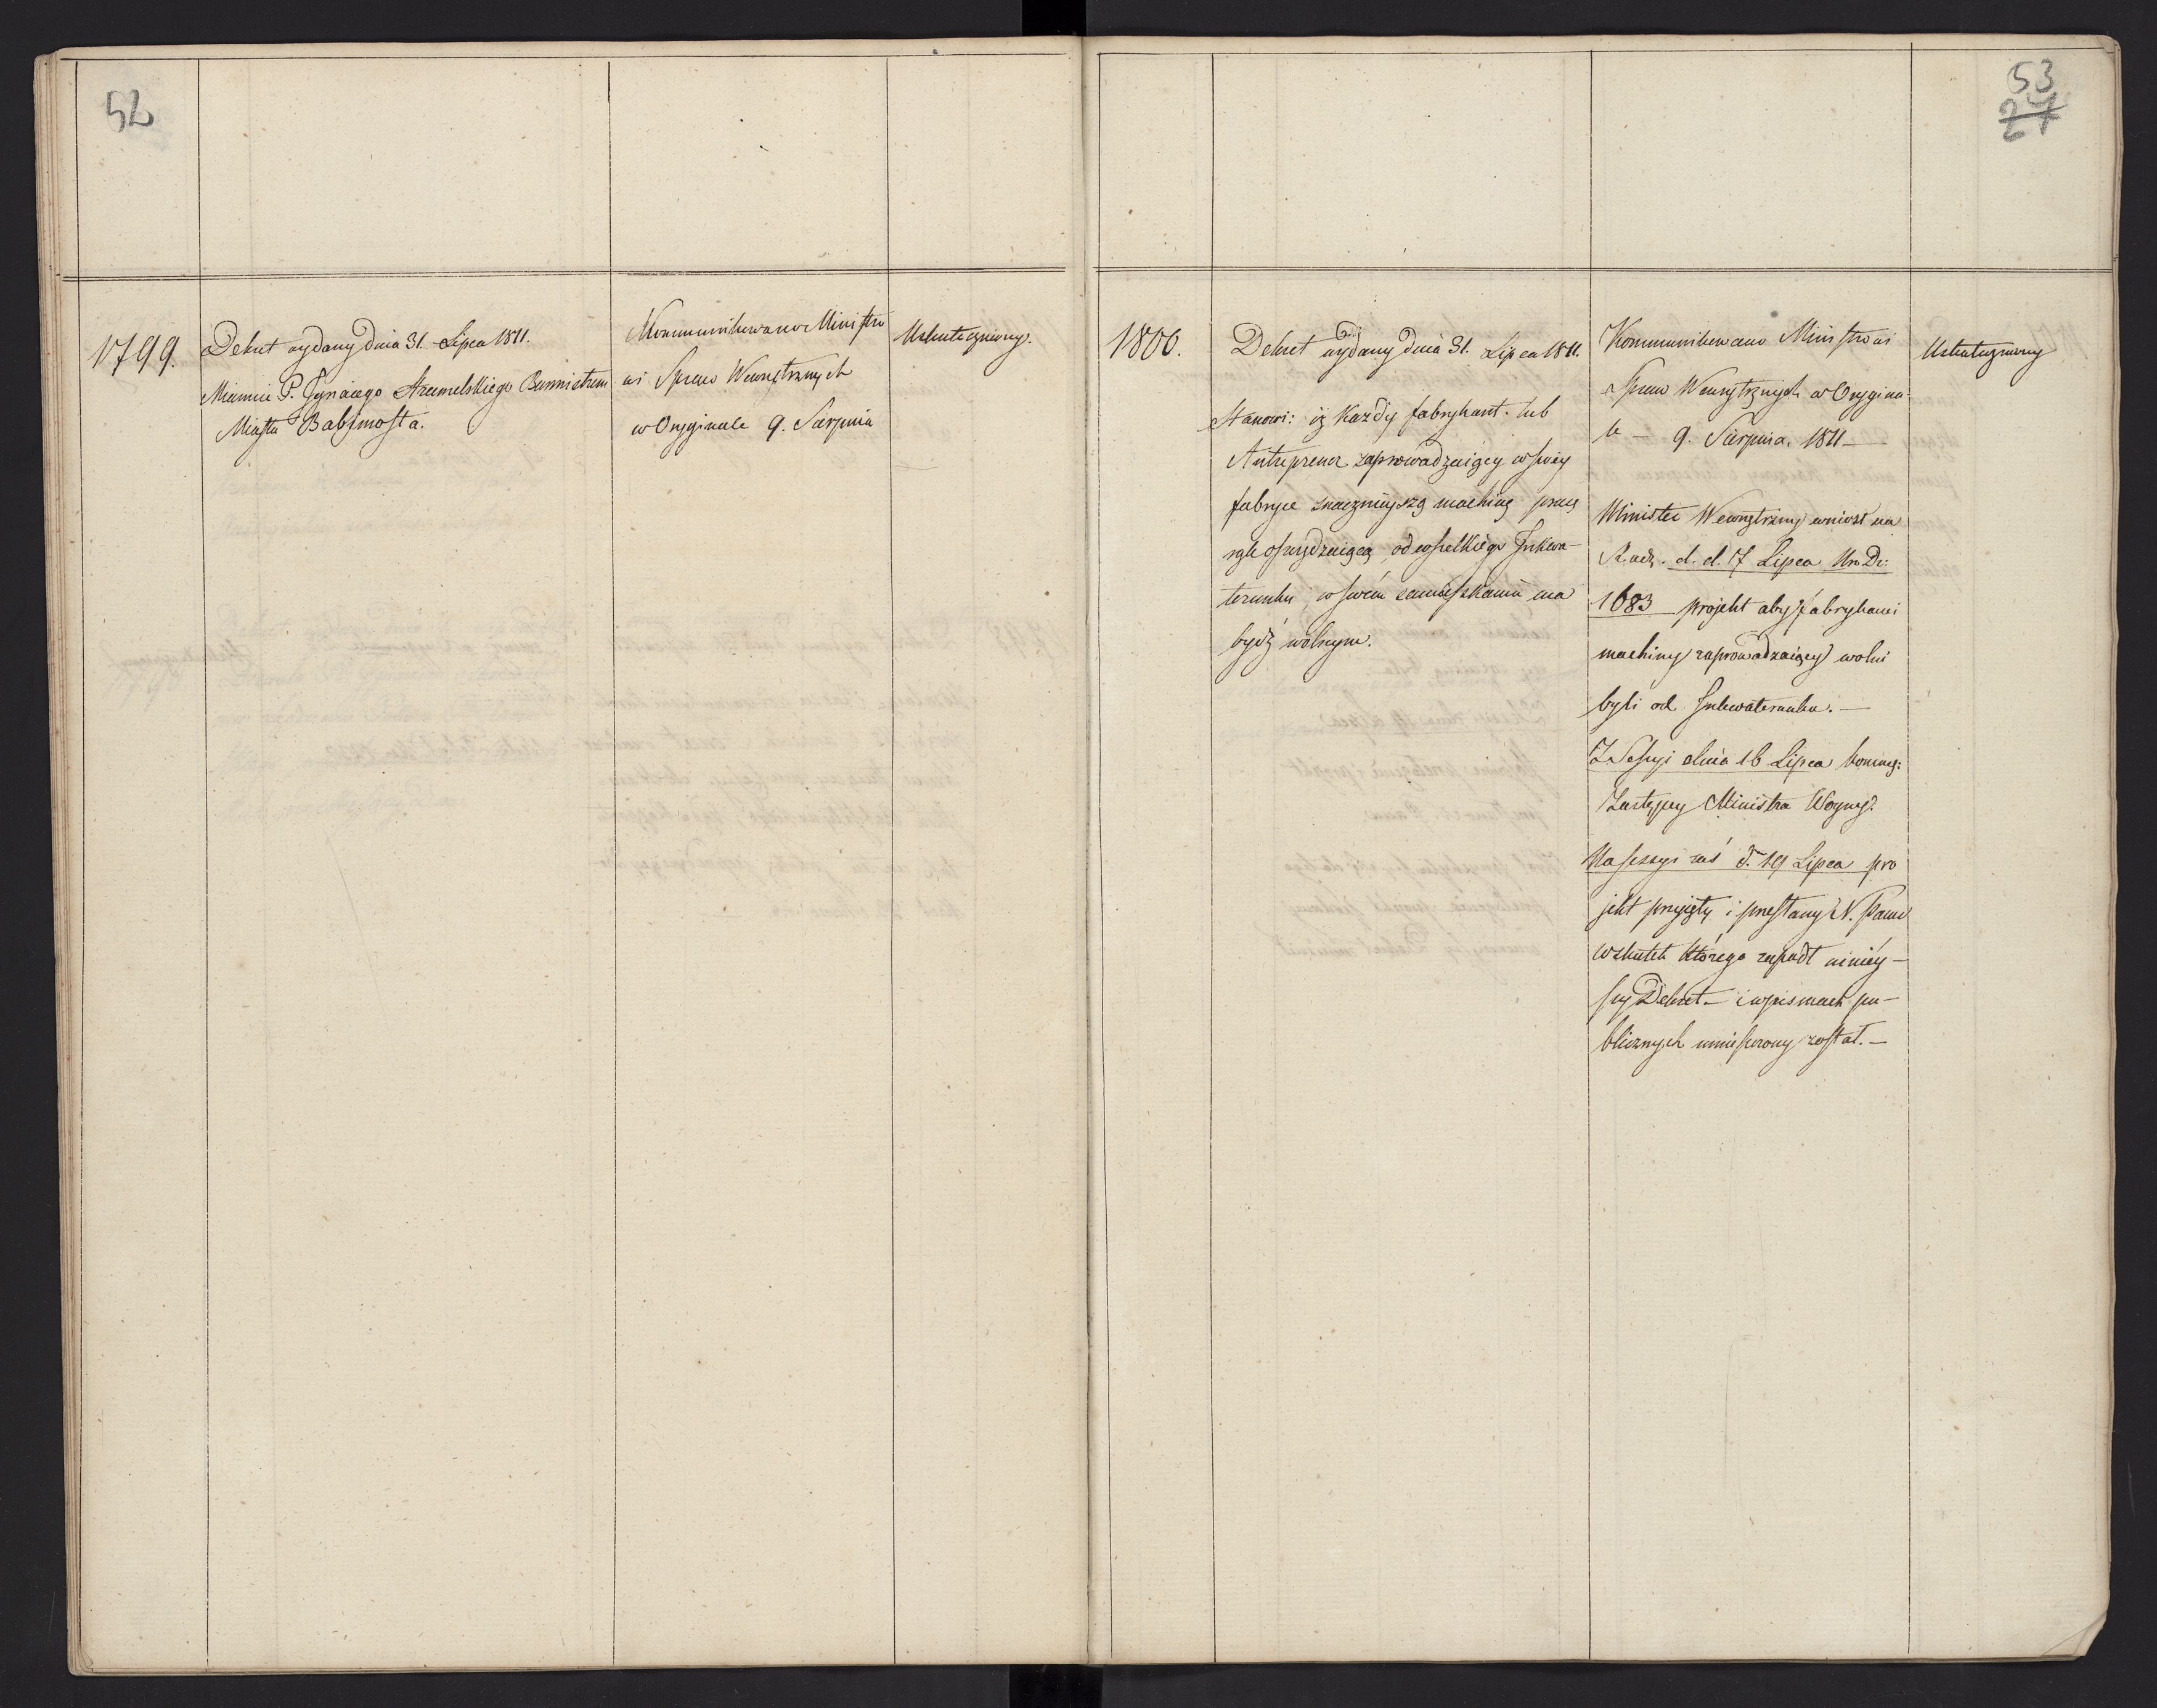 52
1799.
Dekret wydany dnia 31. Lipca 1811.
Mianuie P. Ignacego Burmistrzem
Miasta Babimosta.
Kommunikowano Ministro
wi Spraw Wewnętrznych
w Oryginale 9. Sierpnia
Uskuteczniony.
53
27
1800.
Dekret wydany dnia 31. Lipca 1811.
Stanowi: iż Każdy fabrykant lub
Antreprener zaprowadzaiący w swéy
fabryce znacznieyszą machinę pracę
rąk oszczędzaiącą, od wszelkiego Inkwa-
terunku, w swém zamieszkaniu ma
bydź wolnym.
Kommunikowano Ministrowi
Spraw Wewnętrznych w Orygina-
le – 9. Sierpnia. 1811 –
Minister Wewnętrzny wniósł na
Radę. d. d. 17 Lipca Nro Dz:
1683 projekt aby fabrykanci
machiny zaprowadzaiący wolni
byli od Inkwaterunku. –
Z Sessyi dnia 16 Lipca
Zastępcy Ministra Woyny.
Na sessyi zaś d. 19 Lipca pro
jekt przyięty i przesłany N. Panu
wskutek którego zapadł niniéy-
szy Dekret – i w pismach pu-
blicznych umieszczony został. –
Uskuteczniony